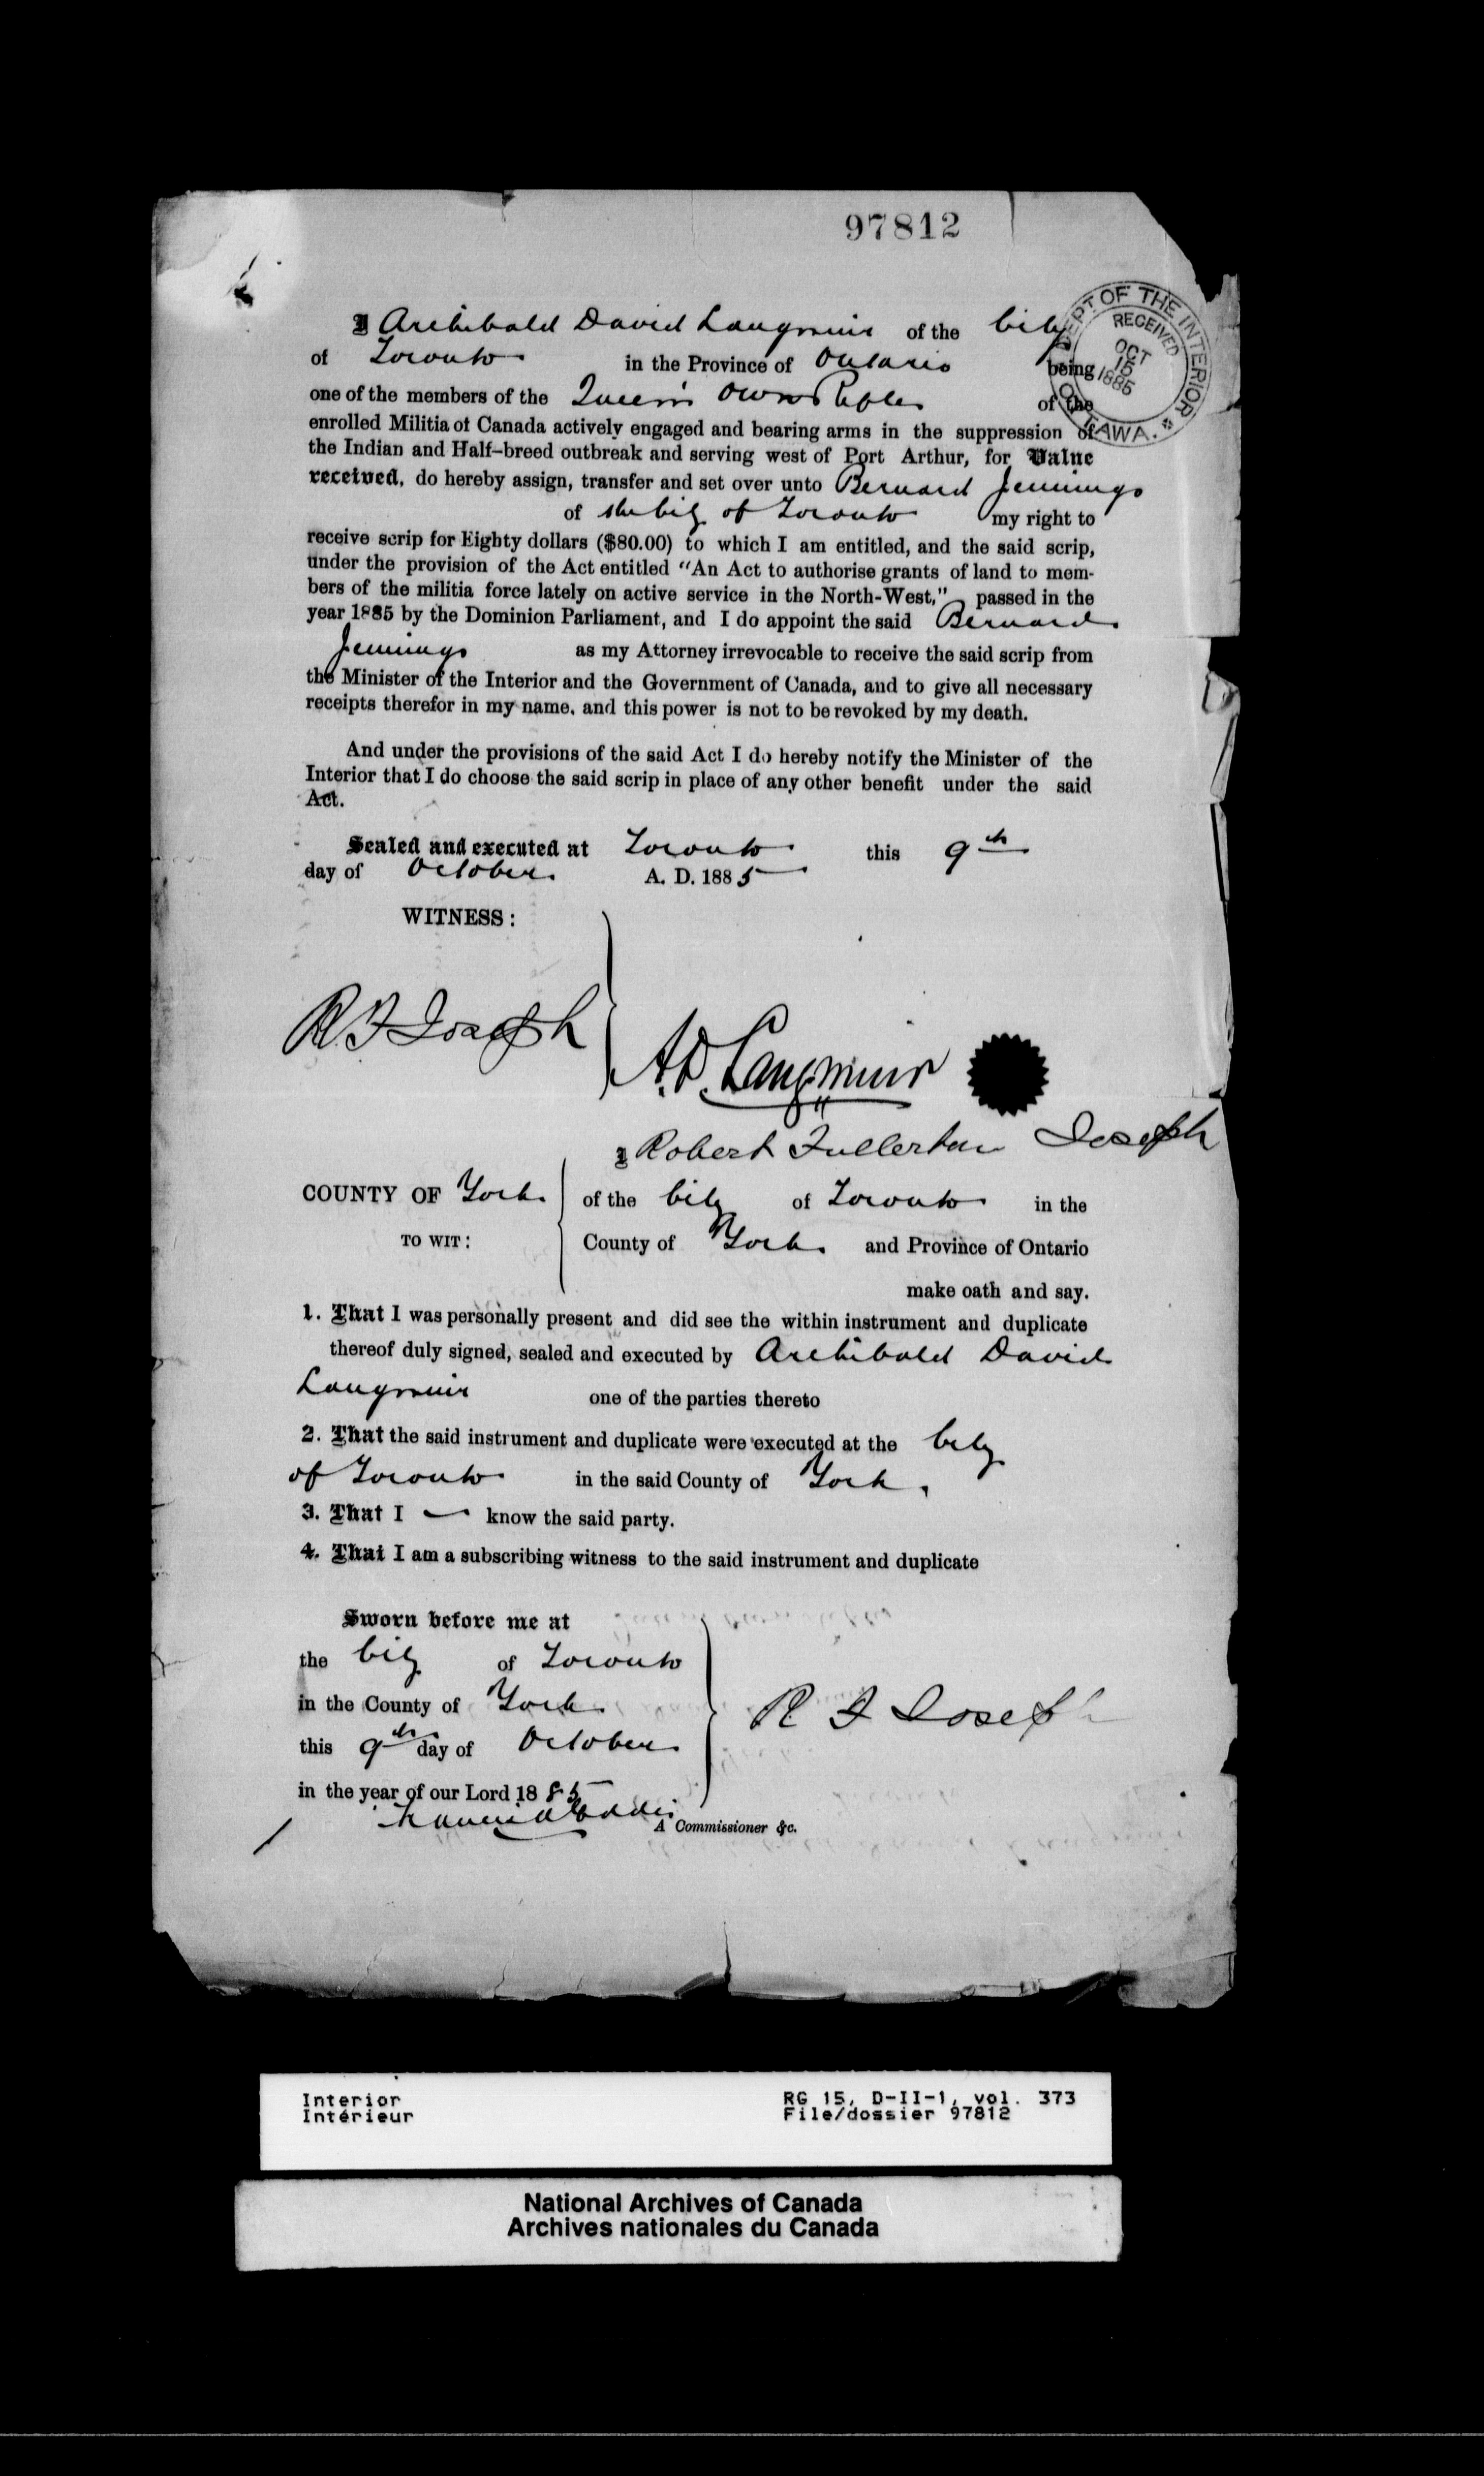 97812
DEPT. OF THE INTERIOR
RECEIVED
OCT
15
1885
OTTAWA.
I Archibald David Langmuir of the City
of Toronto in the Province of Ontario being
one of the members of the Queen's Own Rifles of the
enrolled Militia of Canada actively engaged and bearing arms in the suppression of
the Indian and Half-breed outbreak and serving west of Port Arthur, for Value
received, do hereby assign, transfer and set over unto Bernard Jennings
of the City of Toronto my right to
receive scrip for Eighty dollars ($80.00) to which I am entitled, and the said scrip,
under the provision of the Act entitled "An Act to authorise grants of land to mem-
bers of the militia force lately on active service in the North-West," passed in the
year 1885 by the Dominion Parliament, and I do appoint the said Bernard
Jennings as my Attorney irrevocable to receive the said scrip from
the Minister of the Interior and the Government of Canada, and to give all necessary
receipts therefor in my name, and this power is not to be revoked by my death.
And under the provisions of the said Act I do hereby notify the Minister of the
Interior that I do choose the said scrip in place of any other benefit under the said
Act.
Sealed and executed at Toronto this 9th
day of October A. D. 1885
WITNESS:
R F Joseph
A.D. Langmuir
I Robert Fullerton Joseph
COUNTY OF York of the City of Toronto in the
TO WIT: County of York and Province of Ontario
make oath and say.
1. That I was personally present and did see the within instrument and duplicate
thereof duly signed, sealed and executed by Archibald David
Langmuir one of the parties thereto
2. That the said instrument and duplicate were executed at the City
of Toronto in the said County of York.
3. That I — know the said party.
4. That I am a subscribing witness to the said instrument and duplicate
Sworn before me at
the City of Toronto
in the County of York
this 9th day of October
R F Joseph
in the year of our Lord 1885
A Commissioner &c.
Interior
Intérieur
RG 15, D-II-1, vol. 373
File/dossier 97812
National Archives of Canada
Archives nationales du Canada